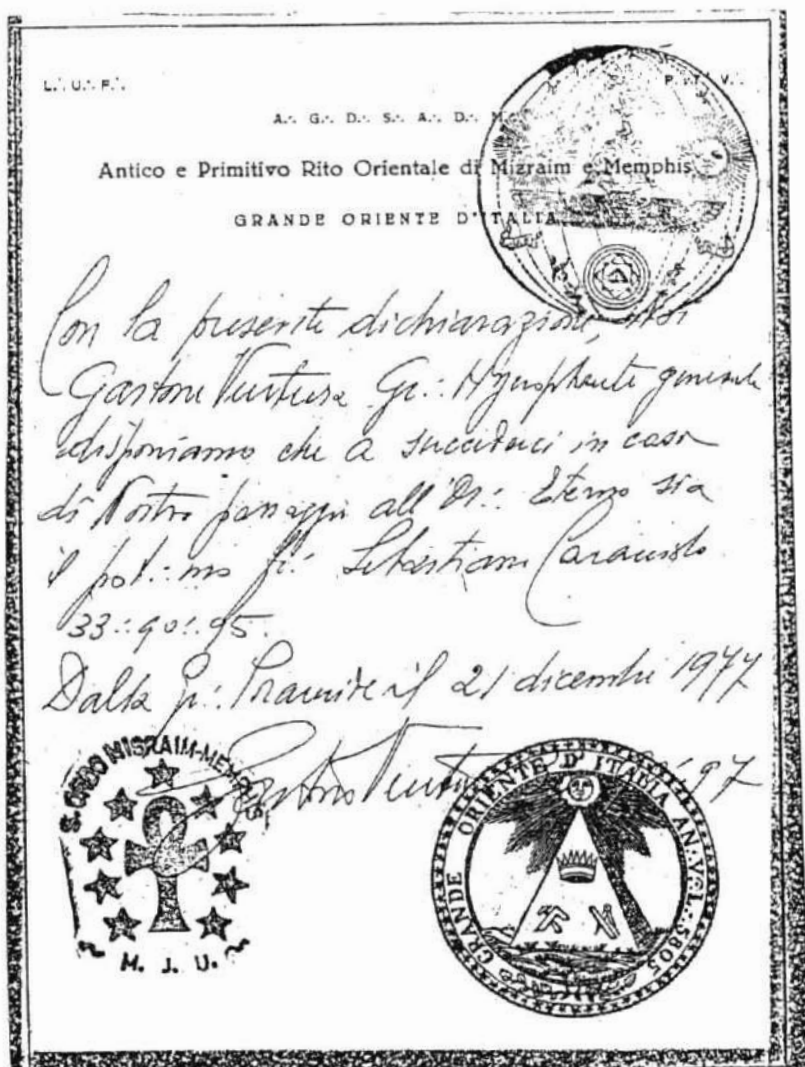 L∴ U∴ F∴ P∴ T∴ V∴
A∴ G∴ D∴ S∴ A∴ D∴ M∴
Antico e Primitivo Rito Orientale di Mizraim e Memphis
GRANDE ORIENTE D'ITALIA
Con la presente dichiarazione, Noi
Gastone Ventura Gr∴ Hyerophante generale
disponiamo che a succederci in caso
di Nostro passaggio all'Or∴ Eterno sia
il pot∴mo fr∴ Sebastiano Caracciolo
33∴ 90∴ 95
Dalla Gr∴ Piramide il 21 dicembre 1977
Gastone Ventura 97
S. ORDO MISRAIM-MEMPHIS
M. J. U.
GRANDE ORIENTE D'ITALIA AN∴ V∴ L∴ 5805